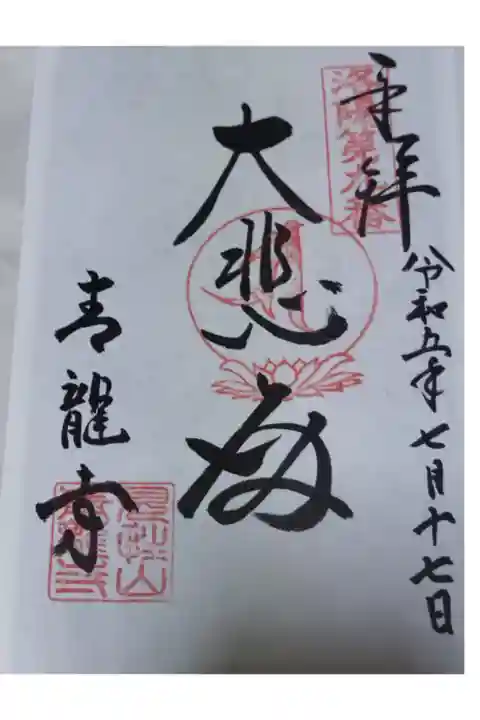 奉拝
洛陽第九番
令和五年七月十七日
大悲殿
青龍寺